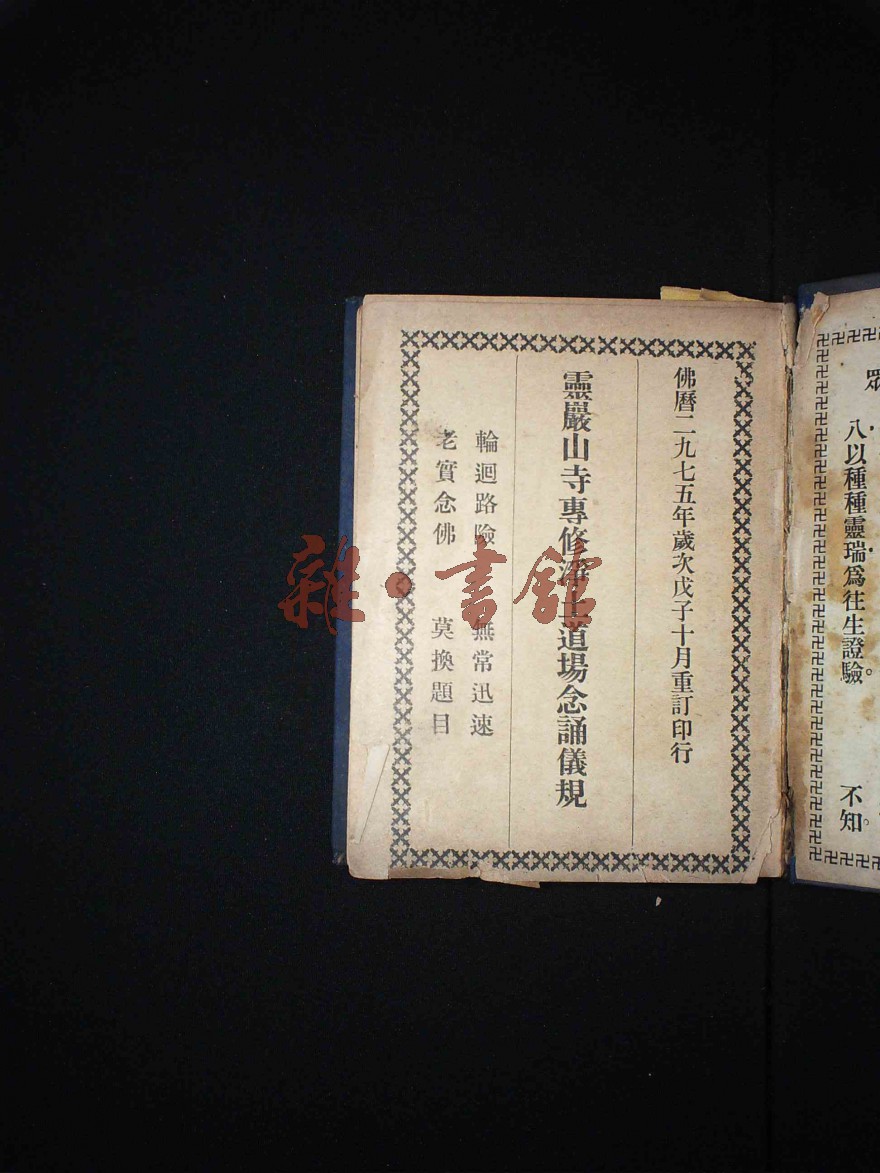 佛曆二九七五年歲次戊子十月重訂印行
靈巖山寺專修淨土道場念誦儀規
輪迴路險　無常迅速
老實念佛　莫換題目
雜·書館
眾
八以種種靈瑞爲往生證驗。　不知。